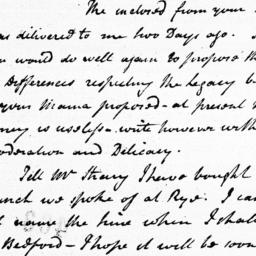 The inclosed from your
as delivered to me two Days ago.
n would do well again to propose th
Differences respecting the Legacy b
your Mama proposed - at present
ney is useless - write however with
oderation and Delicacy.
Tell Mr Strany I have bought
unch we spoke of at Rye. I can
t name the time when I shall
Bedford - I hope it will be soon